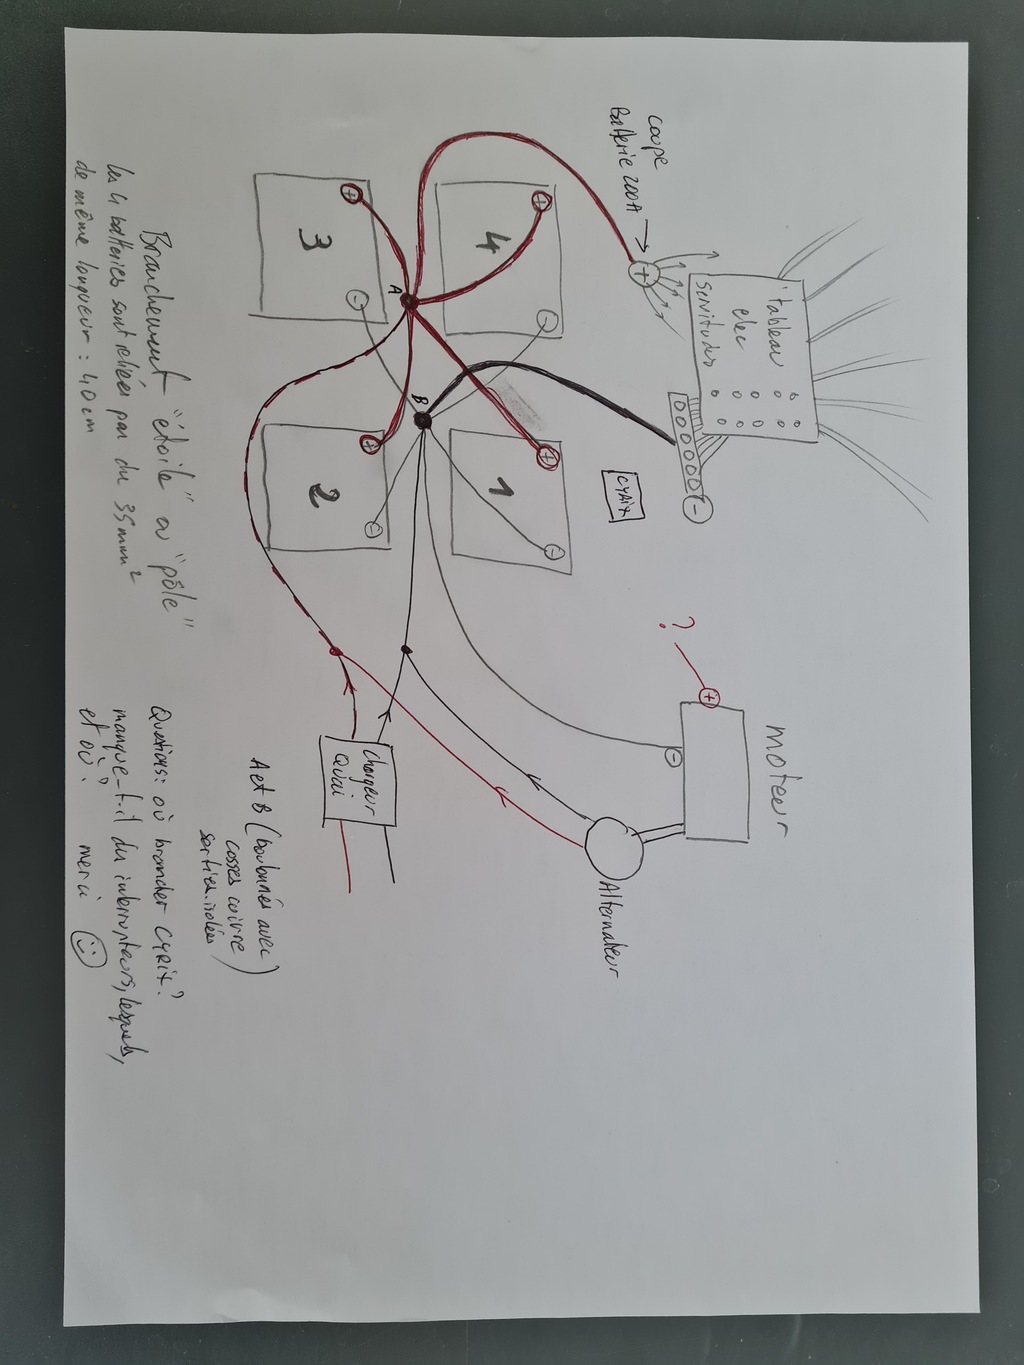 coupe
Batterie 200A
+
tableau
elec
servitudes
-
CYRIX
+
4
-
+
3
-
A
B
+
1
-
+
2
-
?
+
-
moteur
Alternateur
Chargeur
Quai
Branchement "étoile" ou "pôle"
les 4 batteries sont reliées par du 35mm²
de même longueur : 40 cm
A et B (boulonnés avec
cosses cuivre
serties.isolées)
Questions: où brancher CYRIX?
manque-t-il du interrupteurs, lesquels,
et où? merci